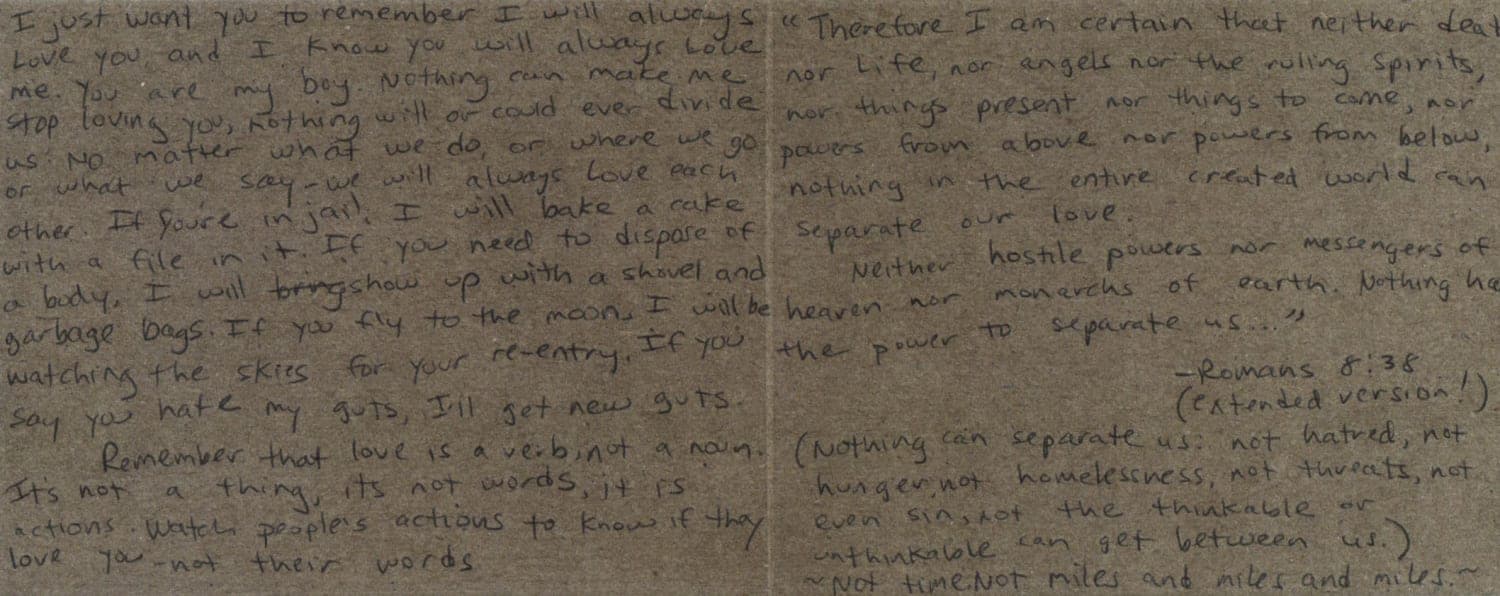 I just want you to remember I will always
Love you, and I know you will always Love
me. You are my boy. Nothing can make me
stop loving you, nothing will or could ever divide
us. No matter what we do, or where we go
or what we say - we will always Love each
other. If you're in jail, I will bake a cake
with a file in it. If you need to dispose of
a body, I will bring show up with a shovel and
garbage bags. If you fly to the moon, I will be
watching the skies for your re-entry. If you
say you hate my guts, I'll get new guts.
Remember that love is a verb, not a noun.
It's not a thing, it's not words, it is
actions. Watch people's actions to know if they
love you - not their words
"Therefore I am certain that neither deat
nor Life, nor angels nor the ruling spirits,
nor things present nor things to come, nor
powers from above nor powers from below,
nothing in the entire created world can
separate our love.
Neither hostile powers nor messengers of
heaven nor monarchs of earth. Nothing ha
the power to separate us..."
-Romans 8:38
(extended version!)
(Nothing can separate us: not hatred, not
hunger, not homelessness, not threats, not
even sin, not the thinkable or
unthinkable can get between us.)
~Not time. Not miles and miles and miles.~